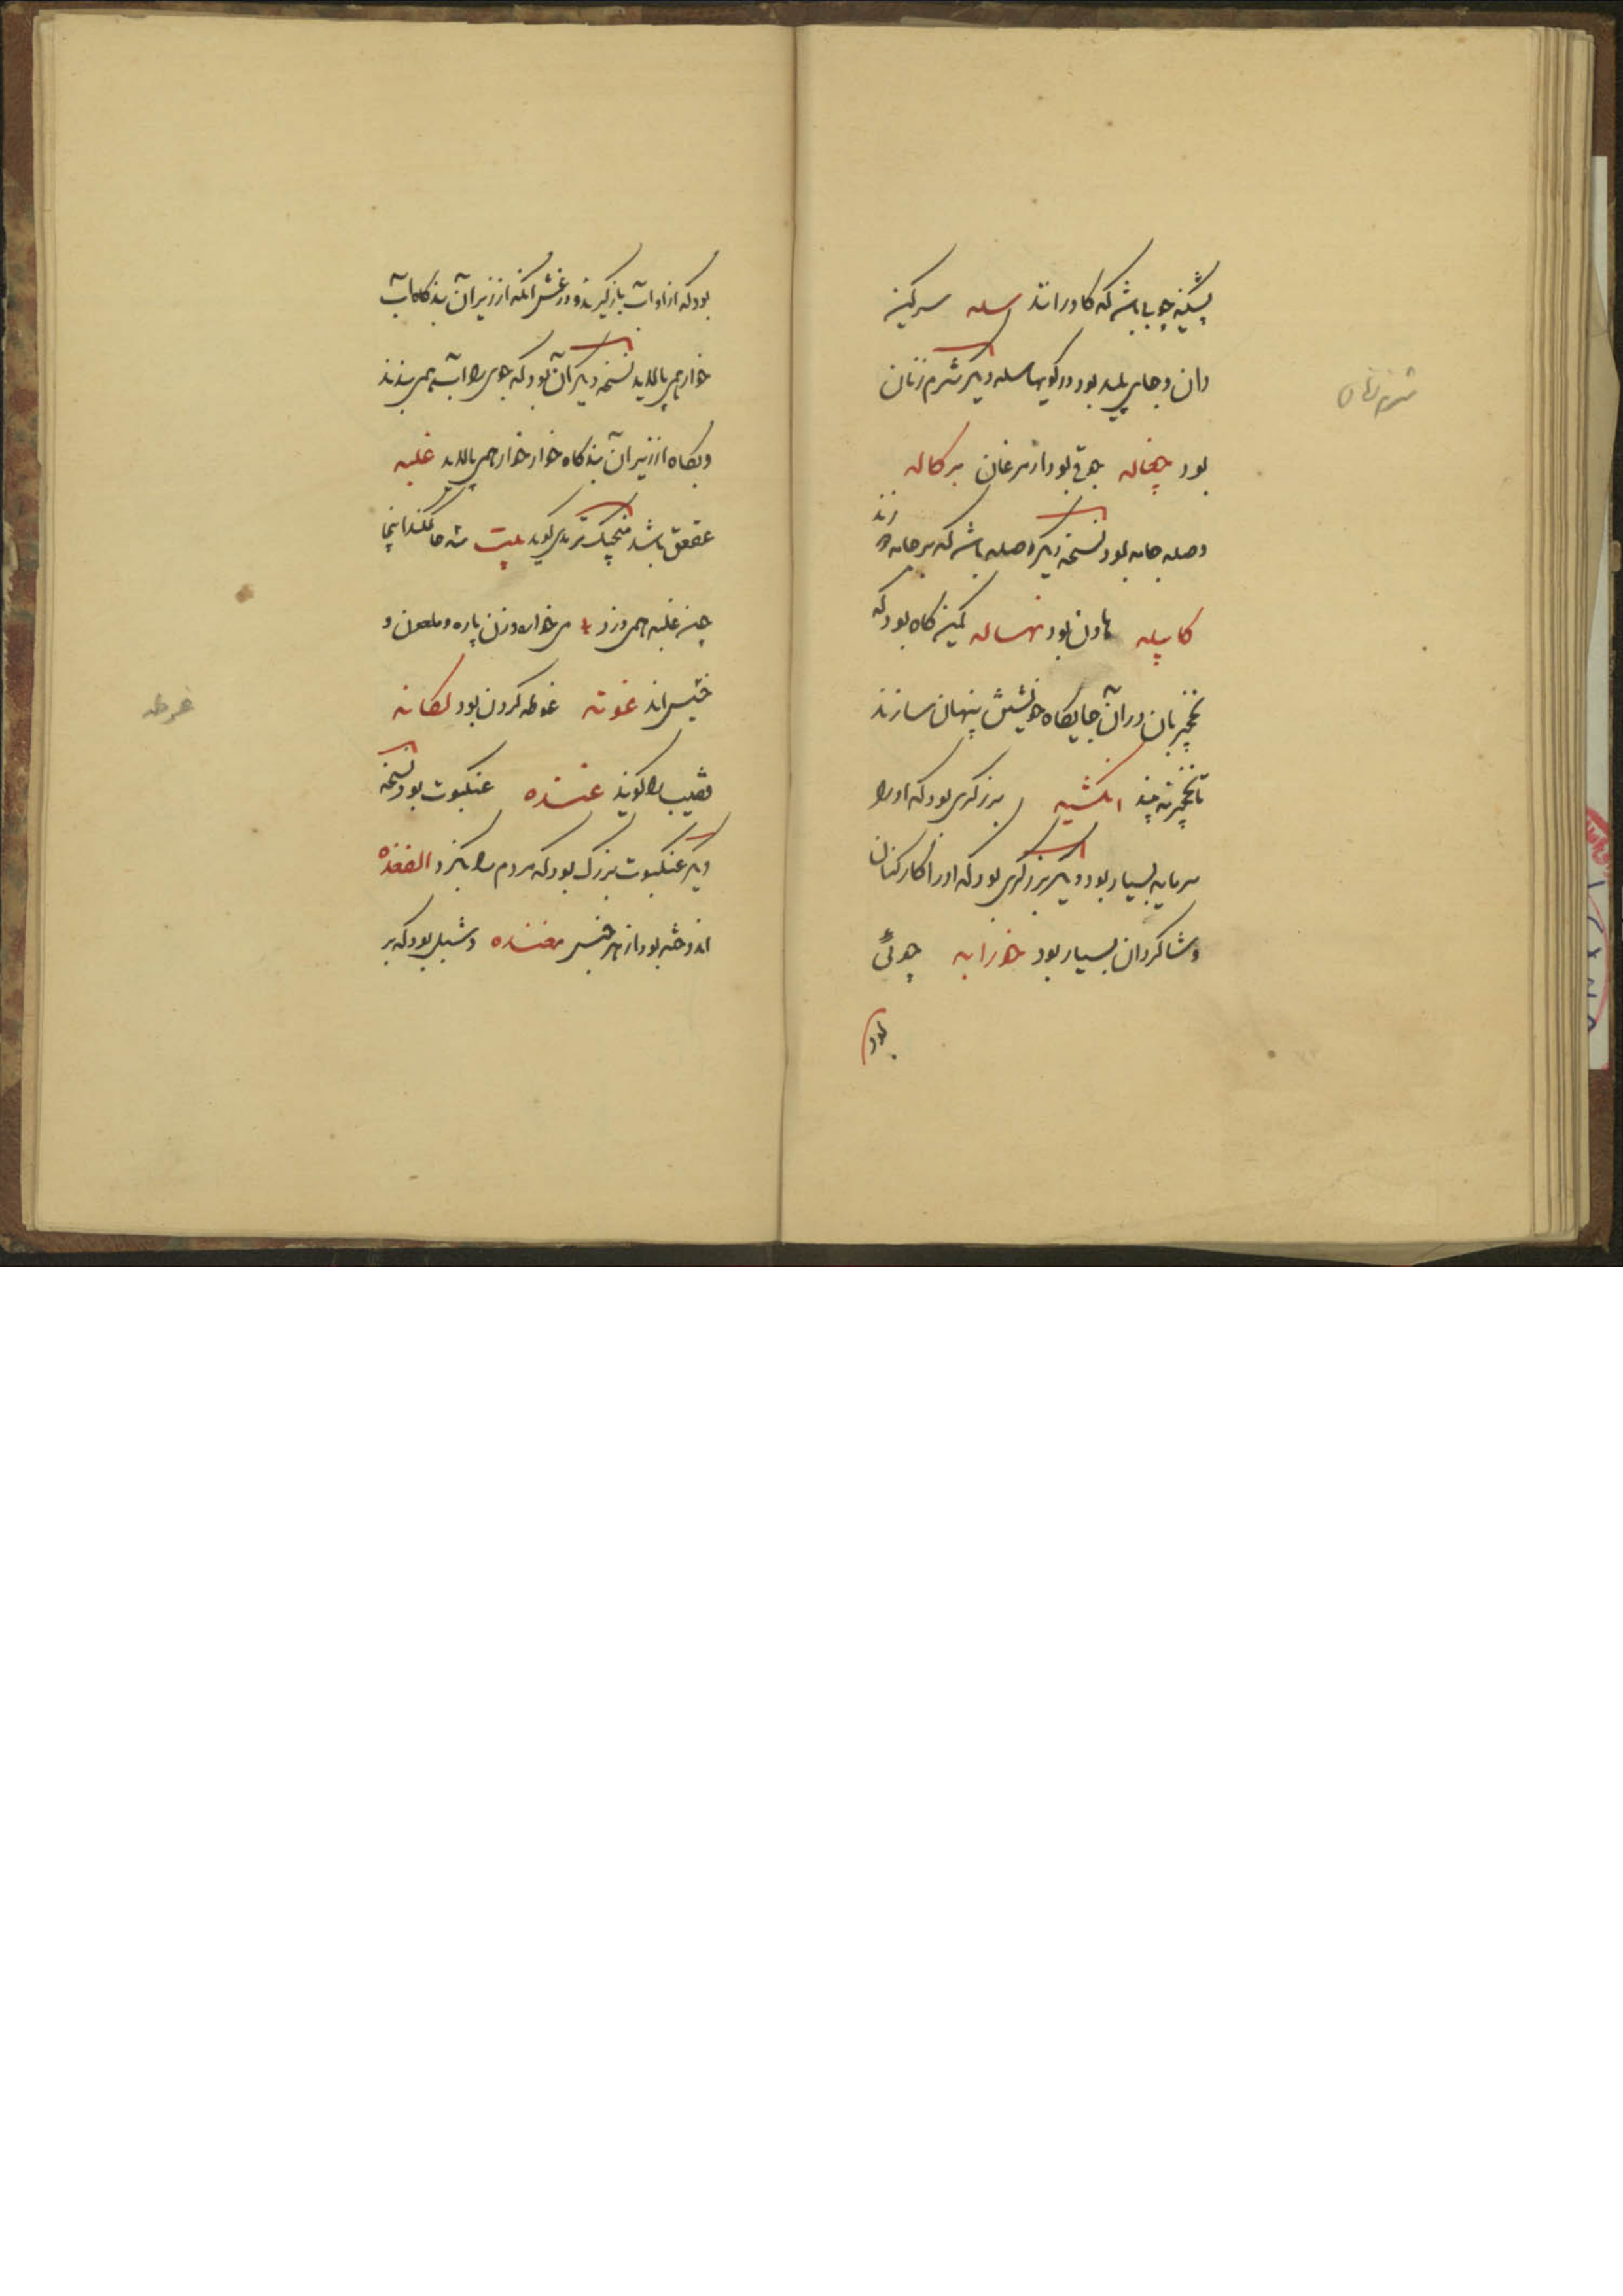 چوب باشد که گاو رانند سله سرگین
دان و جای پلید بود در کویها سله دیگر شرم زنان
بود چغاله جوقی بود از مرغان برکاله
وصله جامه بود نسخه دیگر وصله باشد که بر جامه
زند
کاپیله هاون بود نهاله کمین گاه بود که
نخچیربان در آن جایگاه خویشتن پنهان سازند
تا نخچیر نه بیند انگشبه برزگری بود که او را
سرمایه بسیار بود دیگر برزگری بود که او را کارکنان
و شاگردان بسیار بود خورابه جوئی
بود
شرم زنان
بود که ازو آب بازگیرند و ورغش آنکه از زیر آن بندگاه آب
خوار همی پالاید نسخه دیگر آن بود که جوی را آب همی بندند
و بگاه از زیران بندگاه خوار خوار همی پالاید غلبه
عقعق باشد منجیک ترمذی گوید بیت
غلبه همی وزد
غوته غوطه کردن بود لکانه
قضیب را گویند غنده عنکبوت بود نسخه
دیگر عنکبوت بزرگ بود که مردم را بگزد الفغده
اندوخته بود از هر جنس مغنده دشبلی بود که بر
غوطه